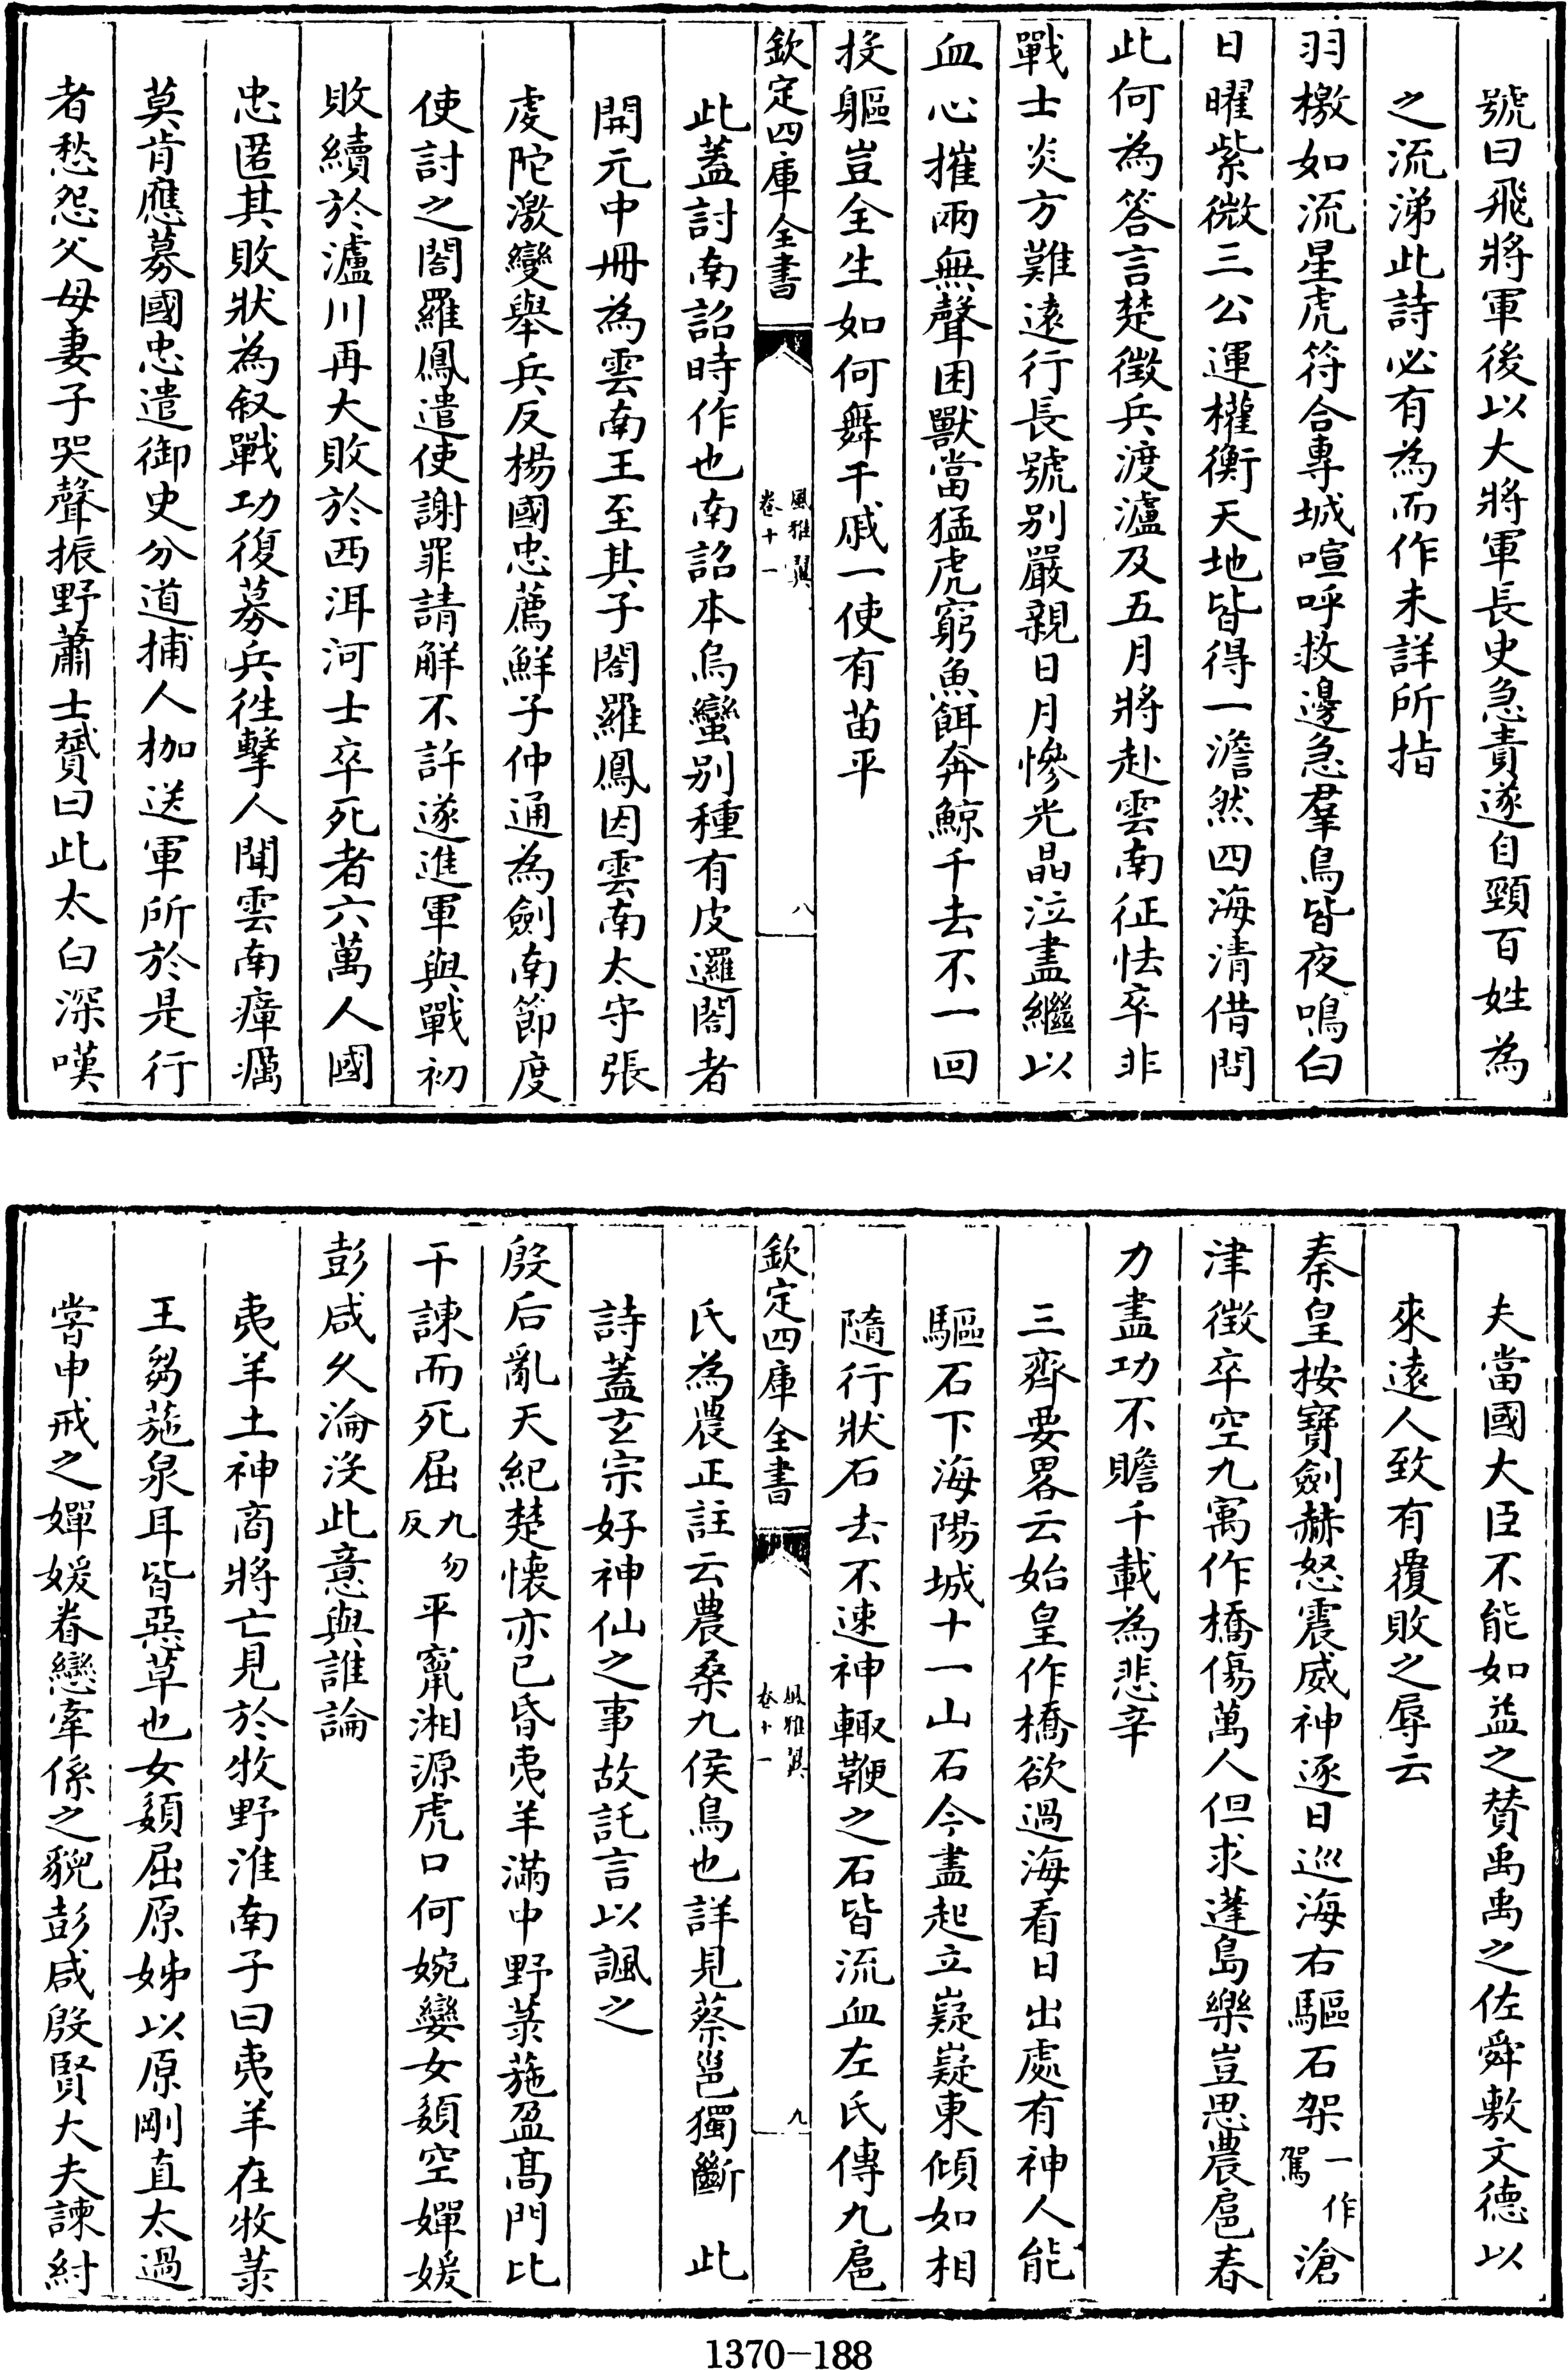 號曰飛將軍後以大將軍長史急責遂自頸百姓為
之流涕此詩必有為而作未詳所指
羽檄如流星虎符合專城喧呼救邊急羣鳥皆夜鳴白
日曜紫微三公運權衡天地皆得一澹然四海清借問
此何為答言楚徵兵渡瀘及五月將赴雲南征怯卒非
戰士炎方難遠行長號别嚴親日月慘光晶泣盡繼以
血心摧兩無聲困獸當猛虎窮魚餌奔鯨千去不一回
投軀豈全生如何舞干戚一使有苗平
欽定四庫全書
風雅翼
卷十一
八
此蓋討南詔時作也南詔本烏蠻别種有皮邏閤者
開元中冊為雲南王至其子閤羅鳳因雲南太守張
虔陀激變舉兵反楊國忠薦鮮于仲通為劍南節度
使討之閤羅鳳遣使謝罪請解不許遂進軍與戰初
敗續於瀘川再大敗於西洱河士卒死者六萬人國
忠匿其敗狀為敘戰功復募兵徃擊人聞雲南瘴癘
莫肯應募國忠遣御史分道捕人枷送軍所於是行
者愁怨父母妻子哭聲振野蕭士贇曰此太白深嘆
夫當國大臣不能如益之賛禹禹之佐舜敷文德以
來遠人致有覆敗之辱云
秦皇按寶劍赫怒震威神逐日巡海右驅石架一作駕滄
津徵卒空九㝢作橋傷萬人但求蓬島樂豈思農扈春
力盡功不贍千載為悲辛
三齊要畧云始皇作橋欲過海看日出處有神人能
驅石下海陽城十一山石今盡起立嶷嶷東傾如相
隨行狀石去不速神輙鞭之石皆流血左氏傳九扈
欽定四庫全書
風雅翼
卷十一
九
氏為農正註云農桑九侯鳥也詳見蔡邕獨斷　此
詩蓋玄宗好神仙之事故託言以諷之
殷后亂天紀楚懷亦已昏夷羊滿中野菉葹盈髙門比
干諫而死屈九勿反平竄湘源虎口何婉孌女嬃空嬋媛
彭咸久淪沒此意與誰論
夷羊土神商將亡見於牧野淮南子曰夷羊在牧菉
王芻葹枲耳皆惡草也女嬃屈原姊以原剛直太過
嘗申戒之嬋媛眷戀牽係之貌彭咸殷賢大夫諫紂
1370-188